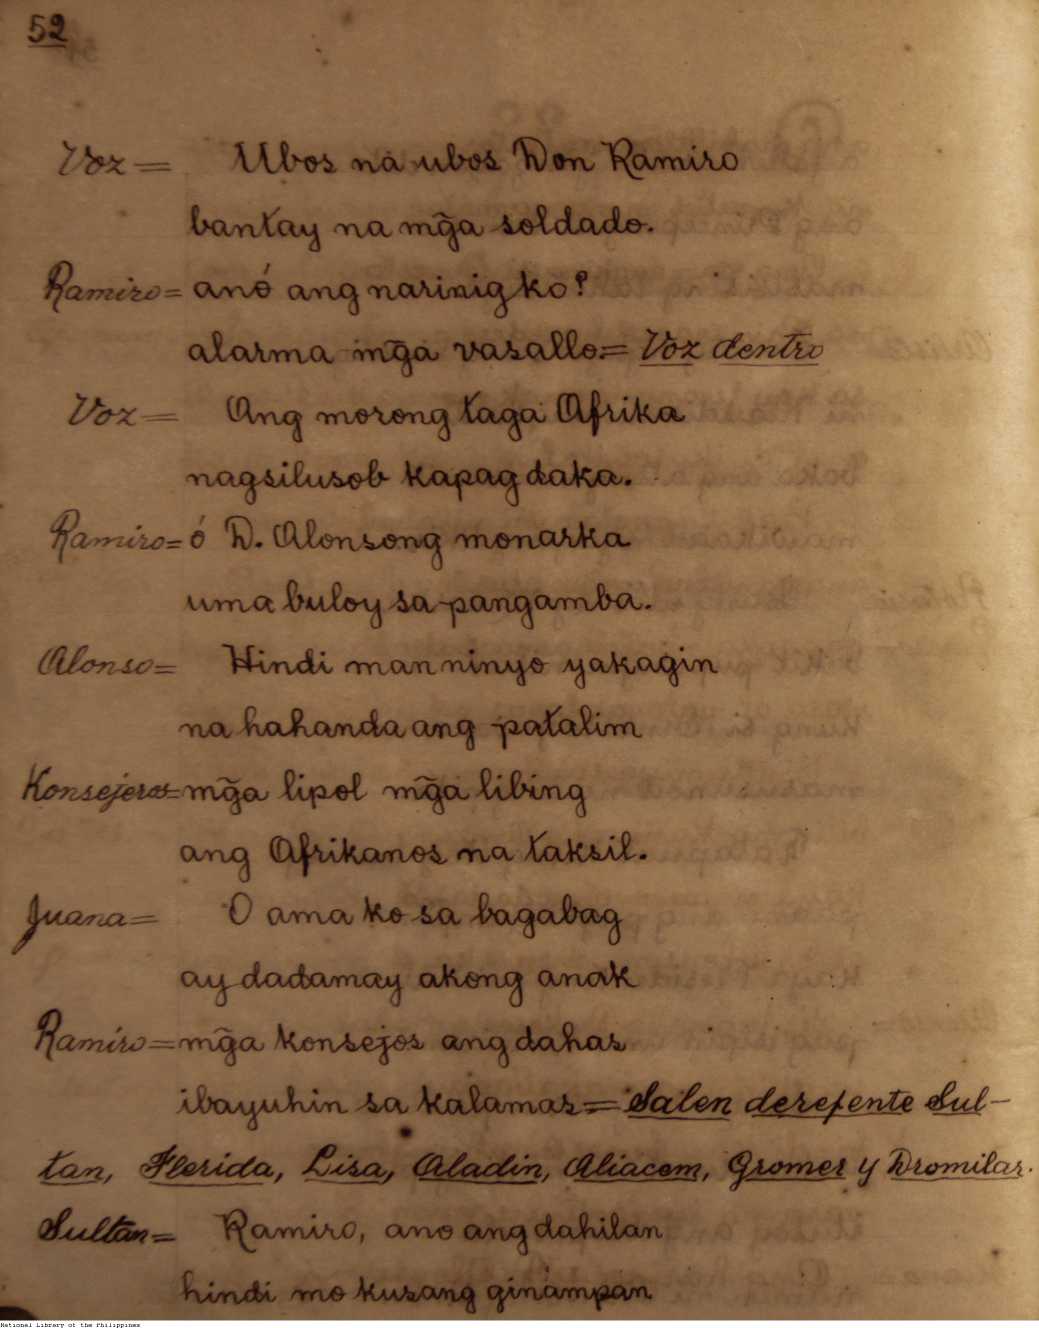 52
Voz = Ubos na ubos Don Ramiro
bantay na mg̃a soldado.
Ramiro = anó ang narinig ko?
alarma mg̃a vasallo. = Voz dentro
Voz = Ang morong taga Afrika
nagsilusob kapag daka.
Ramiro = ó D. Alonsong monarka
uma buloy sa pangamba.
Alonso = Hindi man ninyo yakagin
na hahanda ang patalim
Konsejeros = mg̃a lipol mg̃a libing
ang Afrikanos na taksil.
Juana = O ama ko sa bagabag
ay dadamay akong anak
Ramiro = mg̃a konsejos ang dahas
ibayuhin sa kalamas = Salen derepente Sul-
tan, Flerida, Lisa, Aladin, Aliacem, Gromer y Dromilar.
Sultan = Ramiro, ano ang dahilan
hindi mo kusang ginampan
National Library of the Philippines